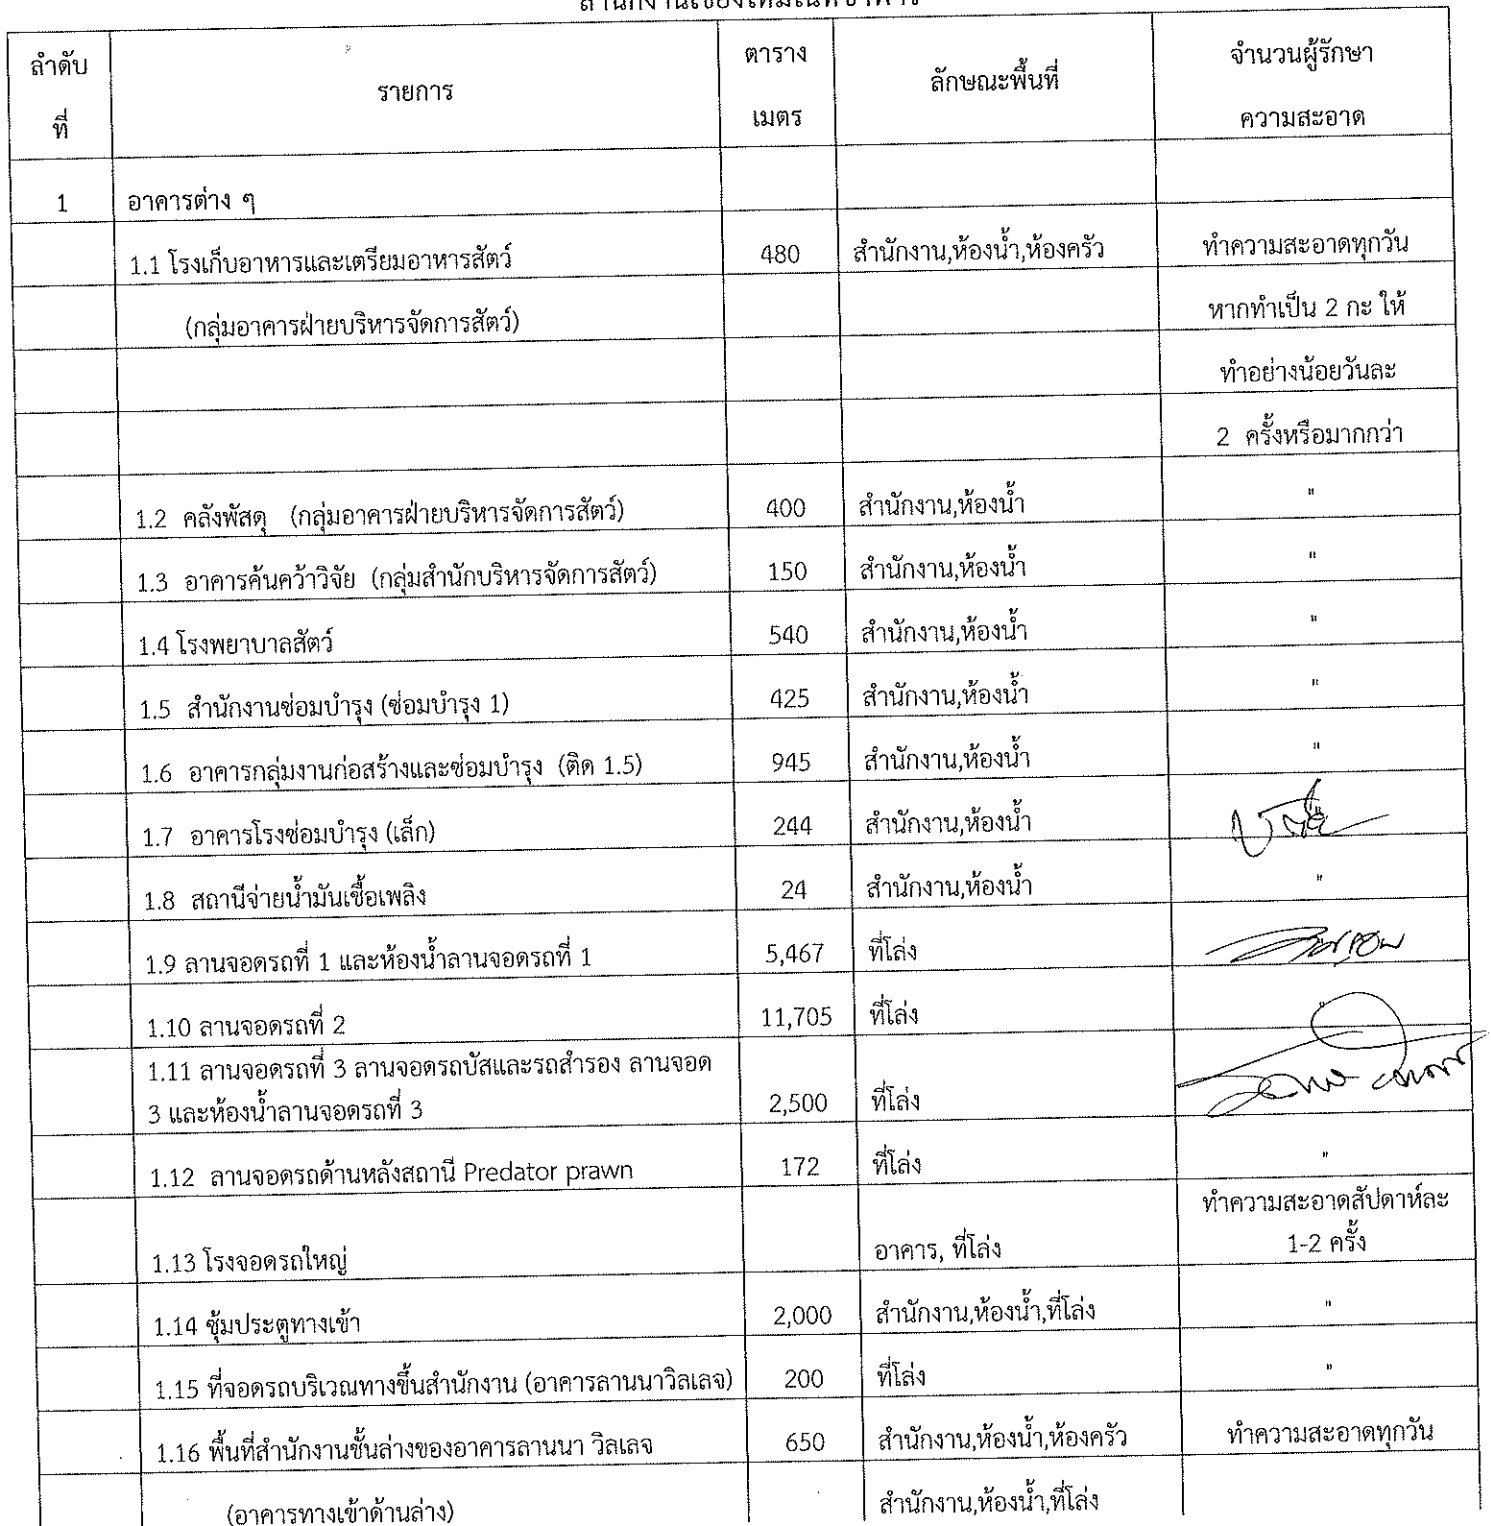 ลำดับ
ที่
รายการ
ตาราง
เมตร
ลักษณะพื้นที่
จำนวนผู้รักษา
ความสะอาด
1 อาคารต่าง ๆ
1.1 โรงเก็บอาหารและเตรียมอาหารสัตว์ 480 สำนักงาน,ห้องน้ำ,ห้องครัว ทำความสะอาดทุกวัน
(กลุ่มอาคารฝ่ายบริหารจัดการสัตว์) หากทำเป็น 2 กะ ให้
ทำอย่างน้อยวันละ
2 ครั้งหรือมากกว่า
1.2 คลังพัสดุ (กลุ่มอาคารฝ่ายบริหารจัดการสัตว์) 400 สำนักงาน,ห้องน้ำ "
1.3 อาคารค้นคว้าวิจัย (กลุ่มสำนักบริหารจัดการสัตว์) 150 สำนักงาน,ห้องน้ำ "
1.4 โรงพยาบาลสัตว์ 540 สำนักงาน,ห้องน้ำ "
1.5 สำนักงานซ่อมบำรุง (ซ่อมบำรุง 1) 425 สำนักงาน,ห้องน้ำ "
1.6 อาคารกลุ่มงานก่อสร้างและซ่อมบำรุง (ติด 1.5) 945 สำนักงาน,ห้องน้ำ "
1.7 อาคารโรงซ่อมบำรุง (เล็ก) 244 สำนักงาน,ห้องน้ำ "
1.8 สถานีจ่ายน้ำมันเชื้อเพลิง 24 สำนักงาน,ห้องน้ำ "
1.9 ลานจอดรถที่ 1 และห้องน้ำลานจอดรถที่ 1 5,467 ที่โล่ง
1.10 ลานจอดรถที่ 2 11,705 ที่โล่ง "
1.11 ลานจอดรถที่ 3 ลานจอดรถบัสและรถสำรอง ลานจอด
3 และห้องน้ำลานจอดรถที่ 3 2,500 ที่โล่ง
1.12 ลานจอดรถด้านหลังสถานี Predator prawn 172 ที่โล่ง "
ทำความสะอาดสัปดาห์ละ
1.13 โรงจอดรถใหญ่ อาคาร, ที่โล่ง 1-2 ครั้ง
1.14 ซุ้มประตูทางเข้า 2,000 สำนักงาน,ห้องน้ำ,ที่โล่ง "
1.15 ที่จอดรถบริเวณทางขึ้นสำนักงาน (อาคารลานนาวิลเลจ) 200 ที่โล่ง "
1.16 พื้นที่สำนักงานชั้นล่างของอาคารลานนา วิลเลจ 650 สำนักงาน,ห้องน้ำ,ห้องครัว ทำความสะอาดทุกวัน
(อาคารทางเข้าด้านล่าง) สำนักงาน,ห้องน้ำ,ที่โล่ง